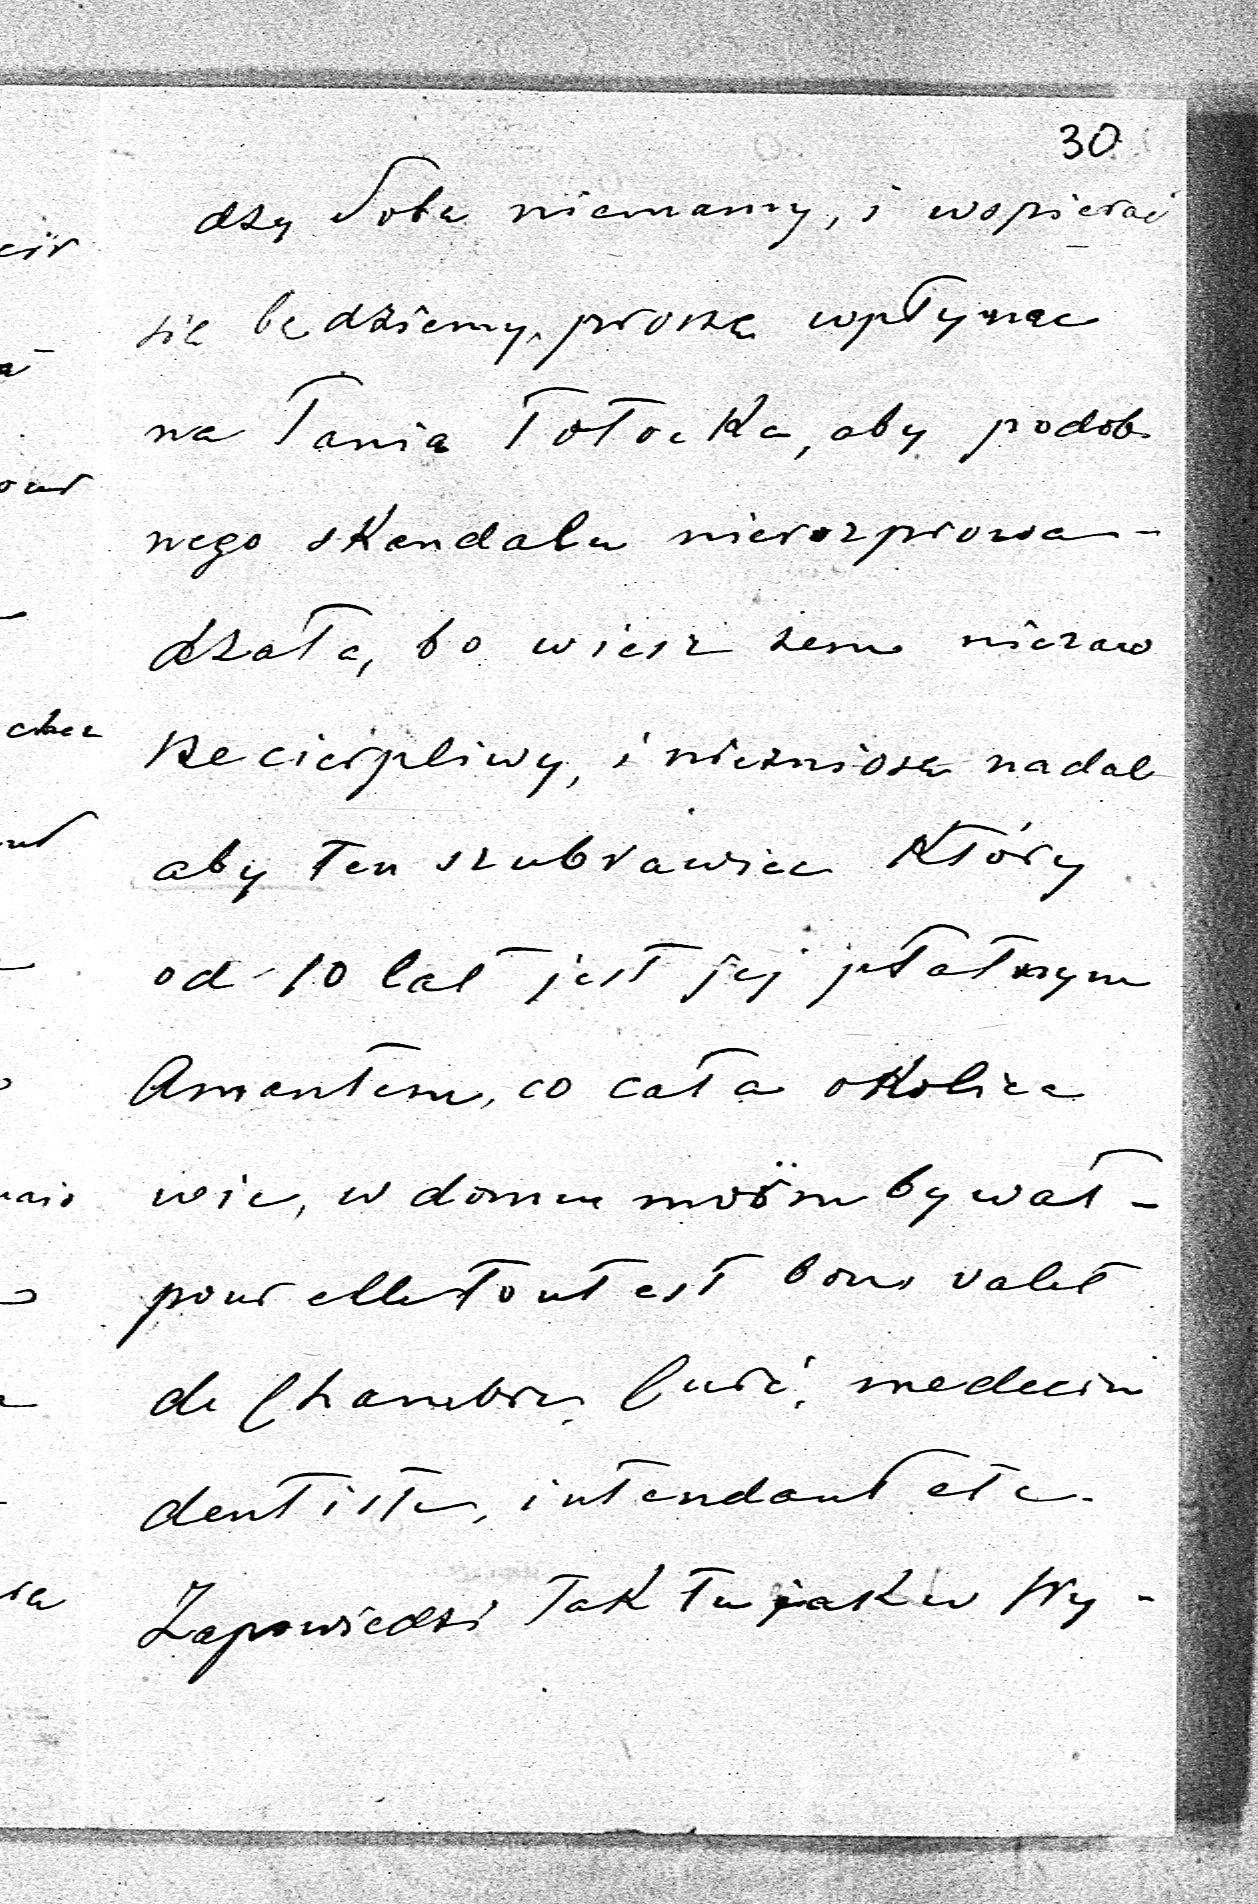 30
dzy Sobą niemamy, i wspierać
się będziemy, proszę wpłynąc
na Panią Potocka, aby podob
nego skandalu nierozprowa-
dzała, bo wiesz żem niezaw
sze cierpliwy, i niezniosę nadal
aby ten szubrawiec który
od 10 lat jest jej płatnym
Amantem, co cała okolica
wie, w domu moïm bywał -
pour elle tout est bon valet
de Chambre, Curé, medecin
dentiste, intendant etc.
Zapowiedzi tak tu jak w Wy-